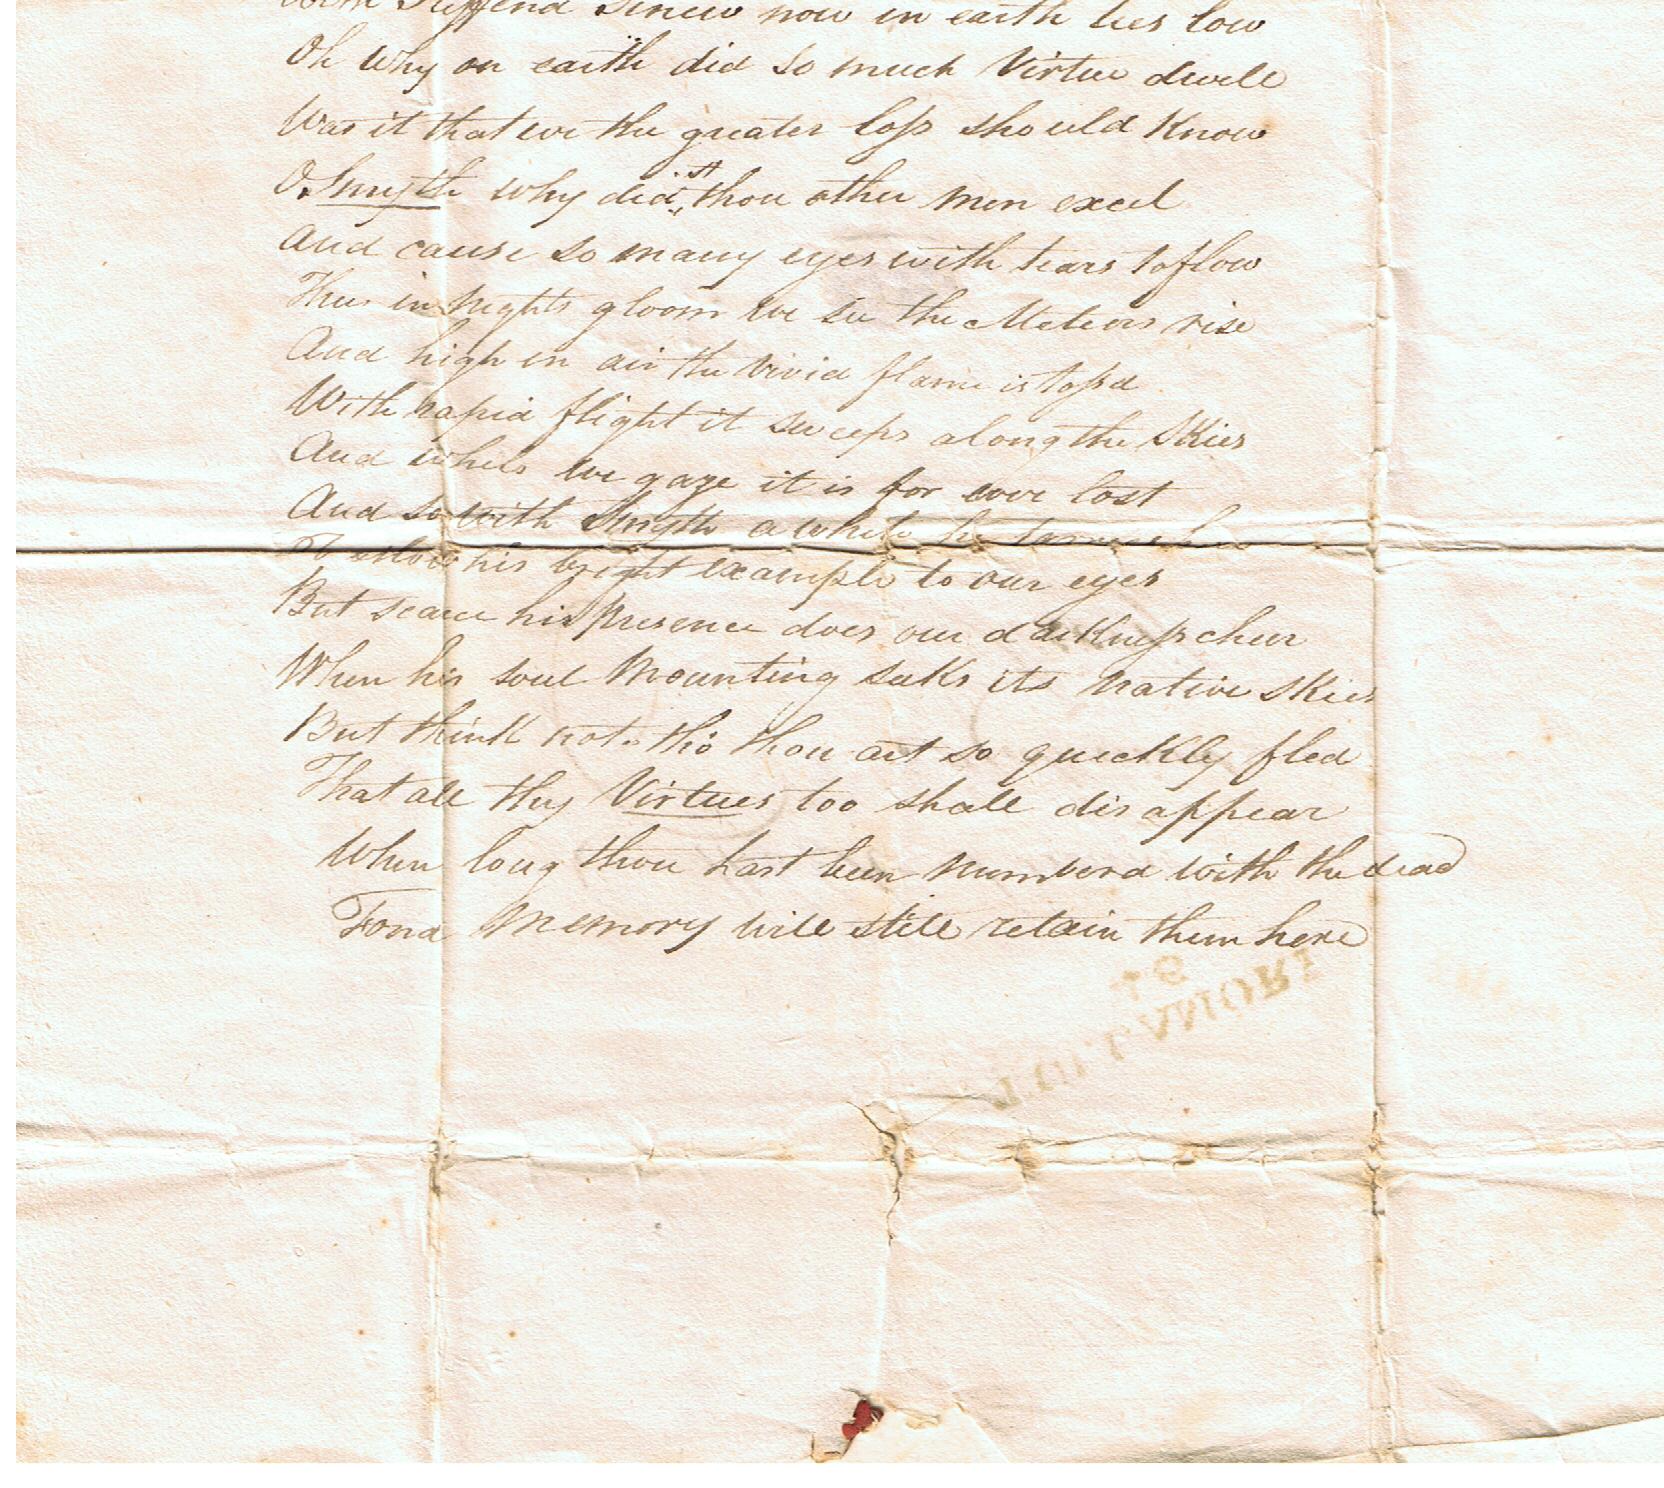 Stiffend Sinew now in earth lies low
Oh why on earth did so much Virtue dwell
Was it that we the greater loſs should Know
O Smyth why didst thou other men excel
And cause so many eyes with tears to flow
Thus in Nights gloom we see the Meteors rise
And high in air the vivid flame is toſsd
With rapid flight it sweeps along the Skies
And whils we gaze it is for ever lost
And so with Smyth a while he
his bright example to our eyes
But scarce his presence does our darkneſs cheer
When his soul Mounting seeks its Native Skies
But think not tho thou art so quickly fled
That all thy Virtues too shall disappear
When long thou hast been Numberd with the dead
Fond Memory will still retain them here